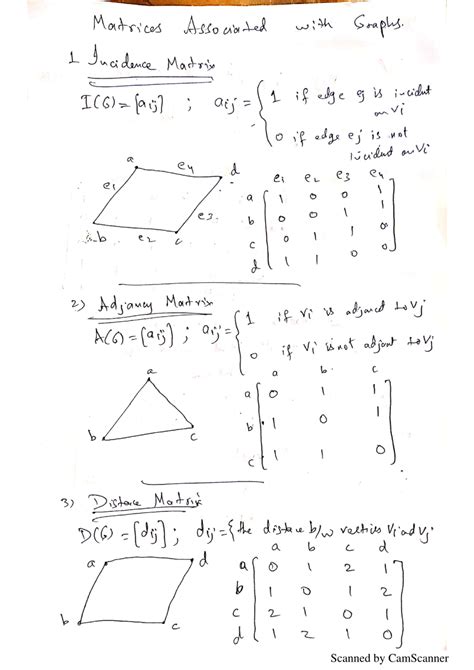 Matrices Associated with Graphs.
1 Incidence Matrix
I(G) = [aij] ; aij = { 1 if edge ej is incident
on vi
0 if edge ej is not
incident on vi
a e4 d
e1 e3
b e2 c
e1 e2 e3 e4
a 1 0 0 1
b 0 0 1 1
c 0 1 1 0
d 1 1 0 0
2) Adjancy Matrix
A(G) = [aij] ; aij = { 1 if vi is adjancd to vj
0 if vi is not adjant to vj
a
b c
a b c
a 0 1 1
b 1 0 1
c 1 1 0
3) Distance Matrix
D(G) = [dij] ; dij = { the distance b/w vertices vi and vj
a d
b c
a b c d
a 0 1 2 1
b 1 0 1 2
c 2 1 0 1
d 1 2 1 0
Scanned by CamScanner